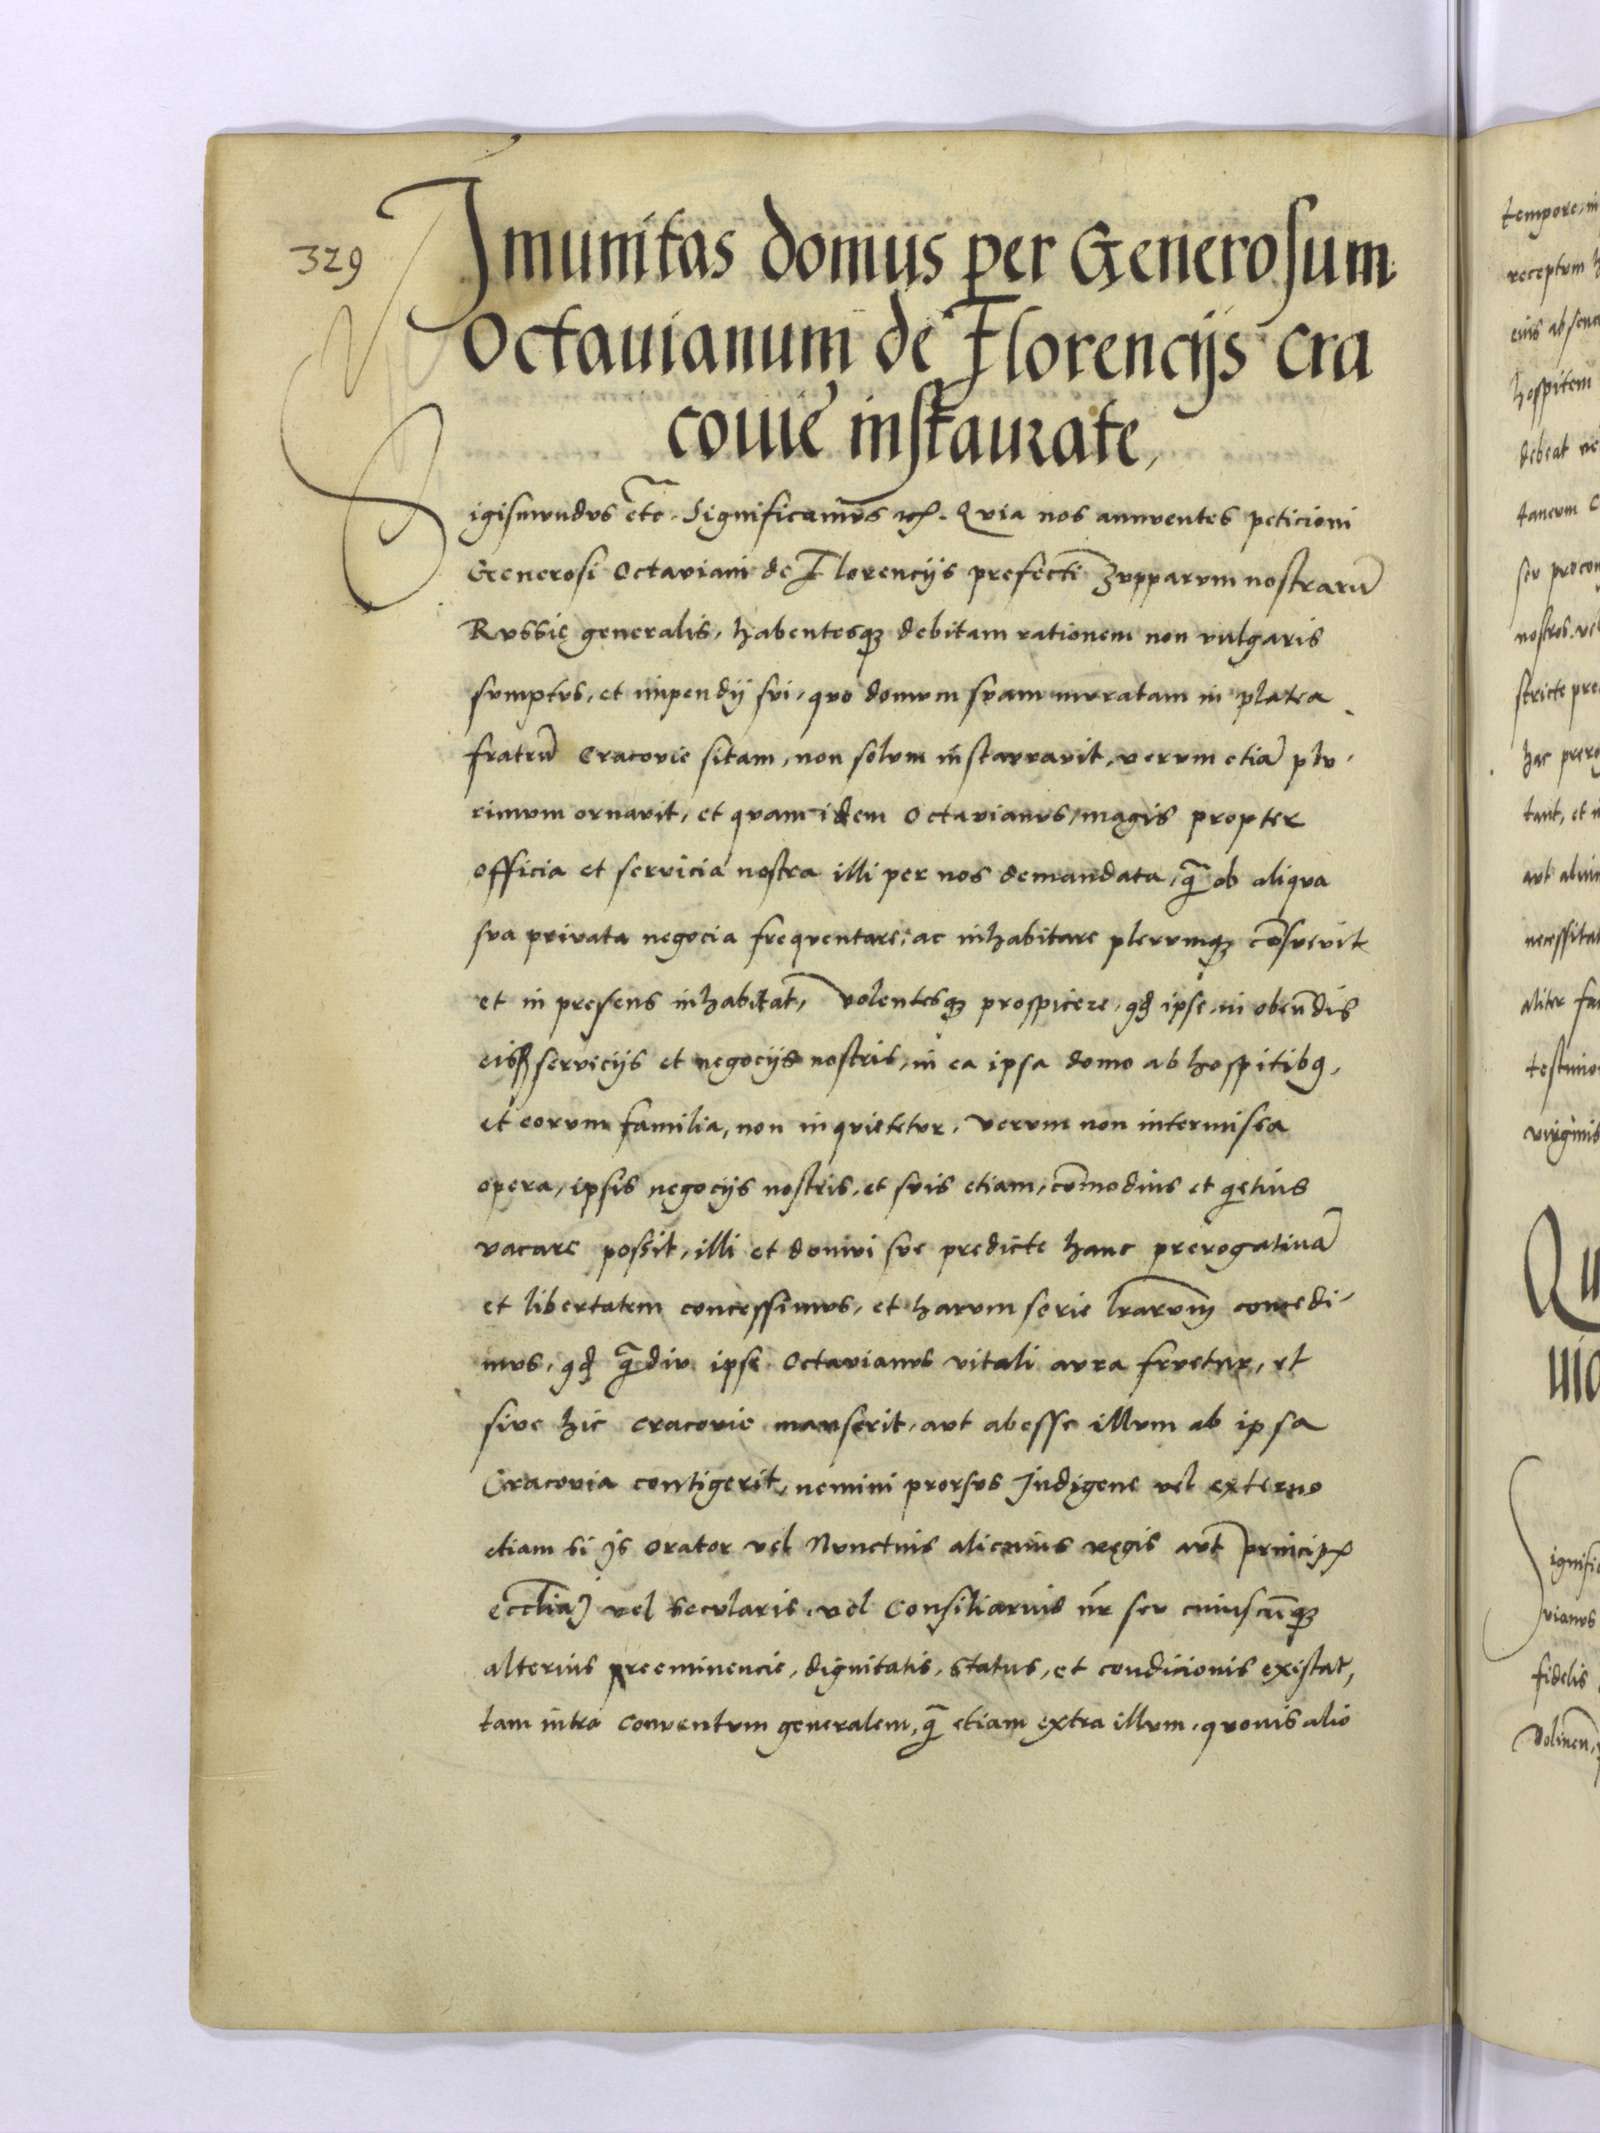 329
Imunitas domus per Generosum
Octauianum de Florencijs Cra
couie instaurate,
Sigismundus etc. Significamus etc. Quia nos annuentes peticioni
Generosi Octaviani de Florencijs prefecti Zupparum nostraru
Russie generalis, habentesq debitam rationem non vulgaris
sumptus, et impendij sui, quo domum suam muratam in platea
fratru Cracovie sitam, non solum instauravit, verum etia plu-
rimum ornavit, et quam idem Octavianus, magis propter
officia et servicia nostra illi per nos demandata, qa ob aliqua
sua privata negocia frequentare, ac inhabitare plerumq cosuevit
et in presens inhabitat, volentesq prospicere, qd ipse in obeudis
eisd servicijs et negocijs nostris, in ea ipsa domo ab hospitibq,
et eorum familia, non inquietetur, verum non intermissa
opera, ipsis negocijs nostris, et suis etiam, comodius et qetius
vacare possit, illi et domui sue predicte hanc prerogativa
et libertatem concessimus, et harum serie lrarum concedi-
mus, qd qadiu ipse Octavianus vitali aura fruetur, et
sive hic Cracovie manserit, aut abesse illum ab ipsa
Cracovia contigerit, nemini prorsus Indigene vel externo
etiam si is orator vel Nunctius alicuius regis aut principis
eccliaj vel secularis, vel Consiliarius nr seu cuiuscuq
alterius preeminencie, dignitatis, status, et condicionis existat,
tam intra Conventum generalem, qa etiam extra illum, quovis alio
tempore, in
receptum h
eius absenc
hospitem
debeat ne
taneum C
seu procon
nostros, vel
stricte pre
hac prero
tant, et in
aut aliun
necessitat
aliter fa
testimo
virginis
Qu
uia
Signific
vianus
fidelis
Dolinen